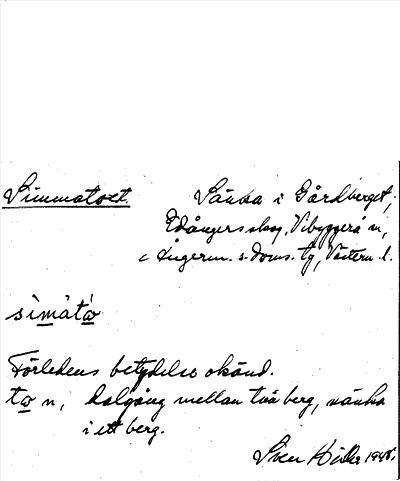 Simmatoet. Sänka i Gårdberget,
Edångers skog, Vibyggerå sn,
Ångerm. s. doms. tg, Västern. l.
sìmátω
Förledens betydelse okänd.
tω n, dalgång mellan två berg, sänka
i ett berg.
Sven 1940.